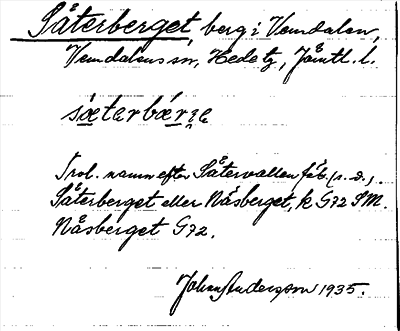 Såterberget, berg i Vemdalen,
Vemdalens sn, Hede tg, Jämtl. l.
sæ̀tarbær̀ʝe
Trol. namn efter Såtervallen fäb. (s. d.).
Såterberget eller Nåsberget, k G72 SM.
Nåsberget G72.
Johan Anderson 1935.